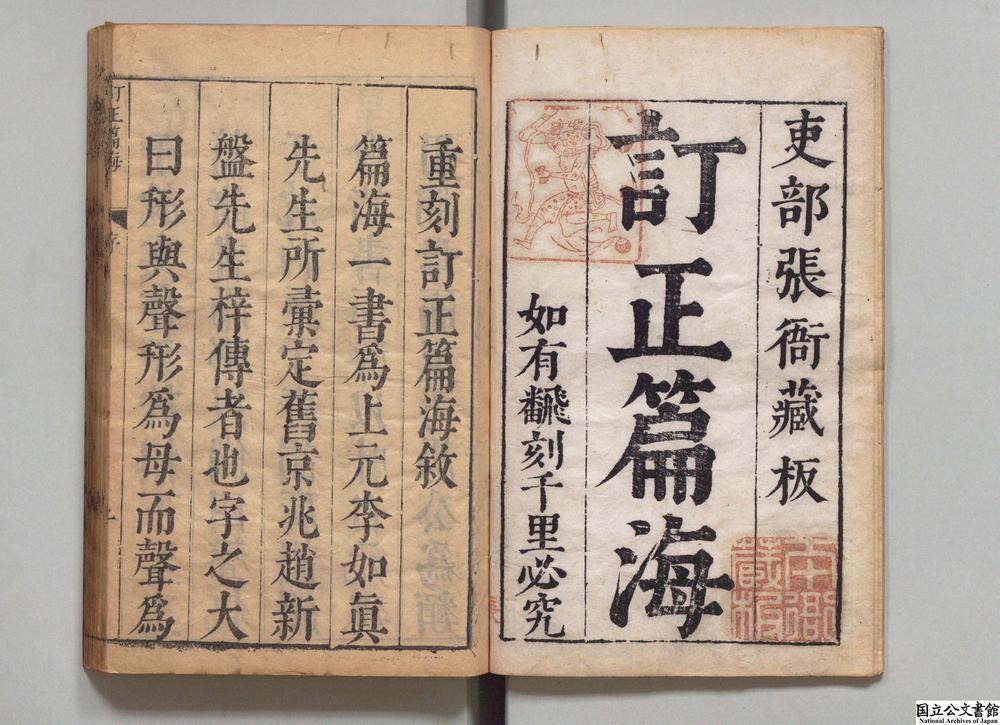 吏部張衙藏板
訂正篇海
如有飜刻千里必究
重刻訂正篇海敘
篇海一書爲上元李如眞
先生所彚定舊京兆趙新
盤先生梓傳者也字之大
曰形與聲形爲母而聲爲
訂正篇海
序
国立公文書館
National Archives of Japan